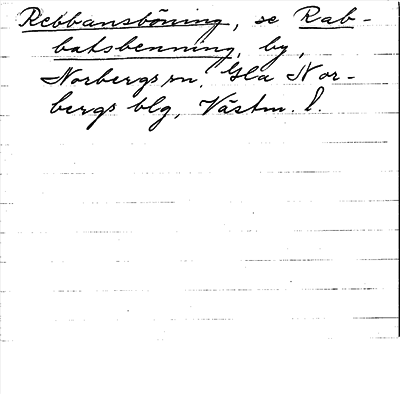 Rebbansböning, se Rab-
batsbenning, by,
Norbergs sn. Gla Nor-
bergs blg, Västm. l.